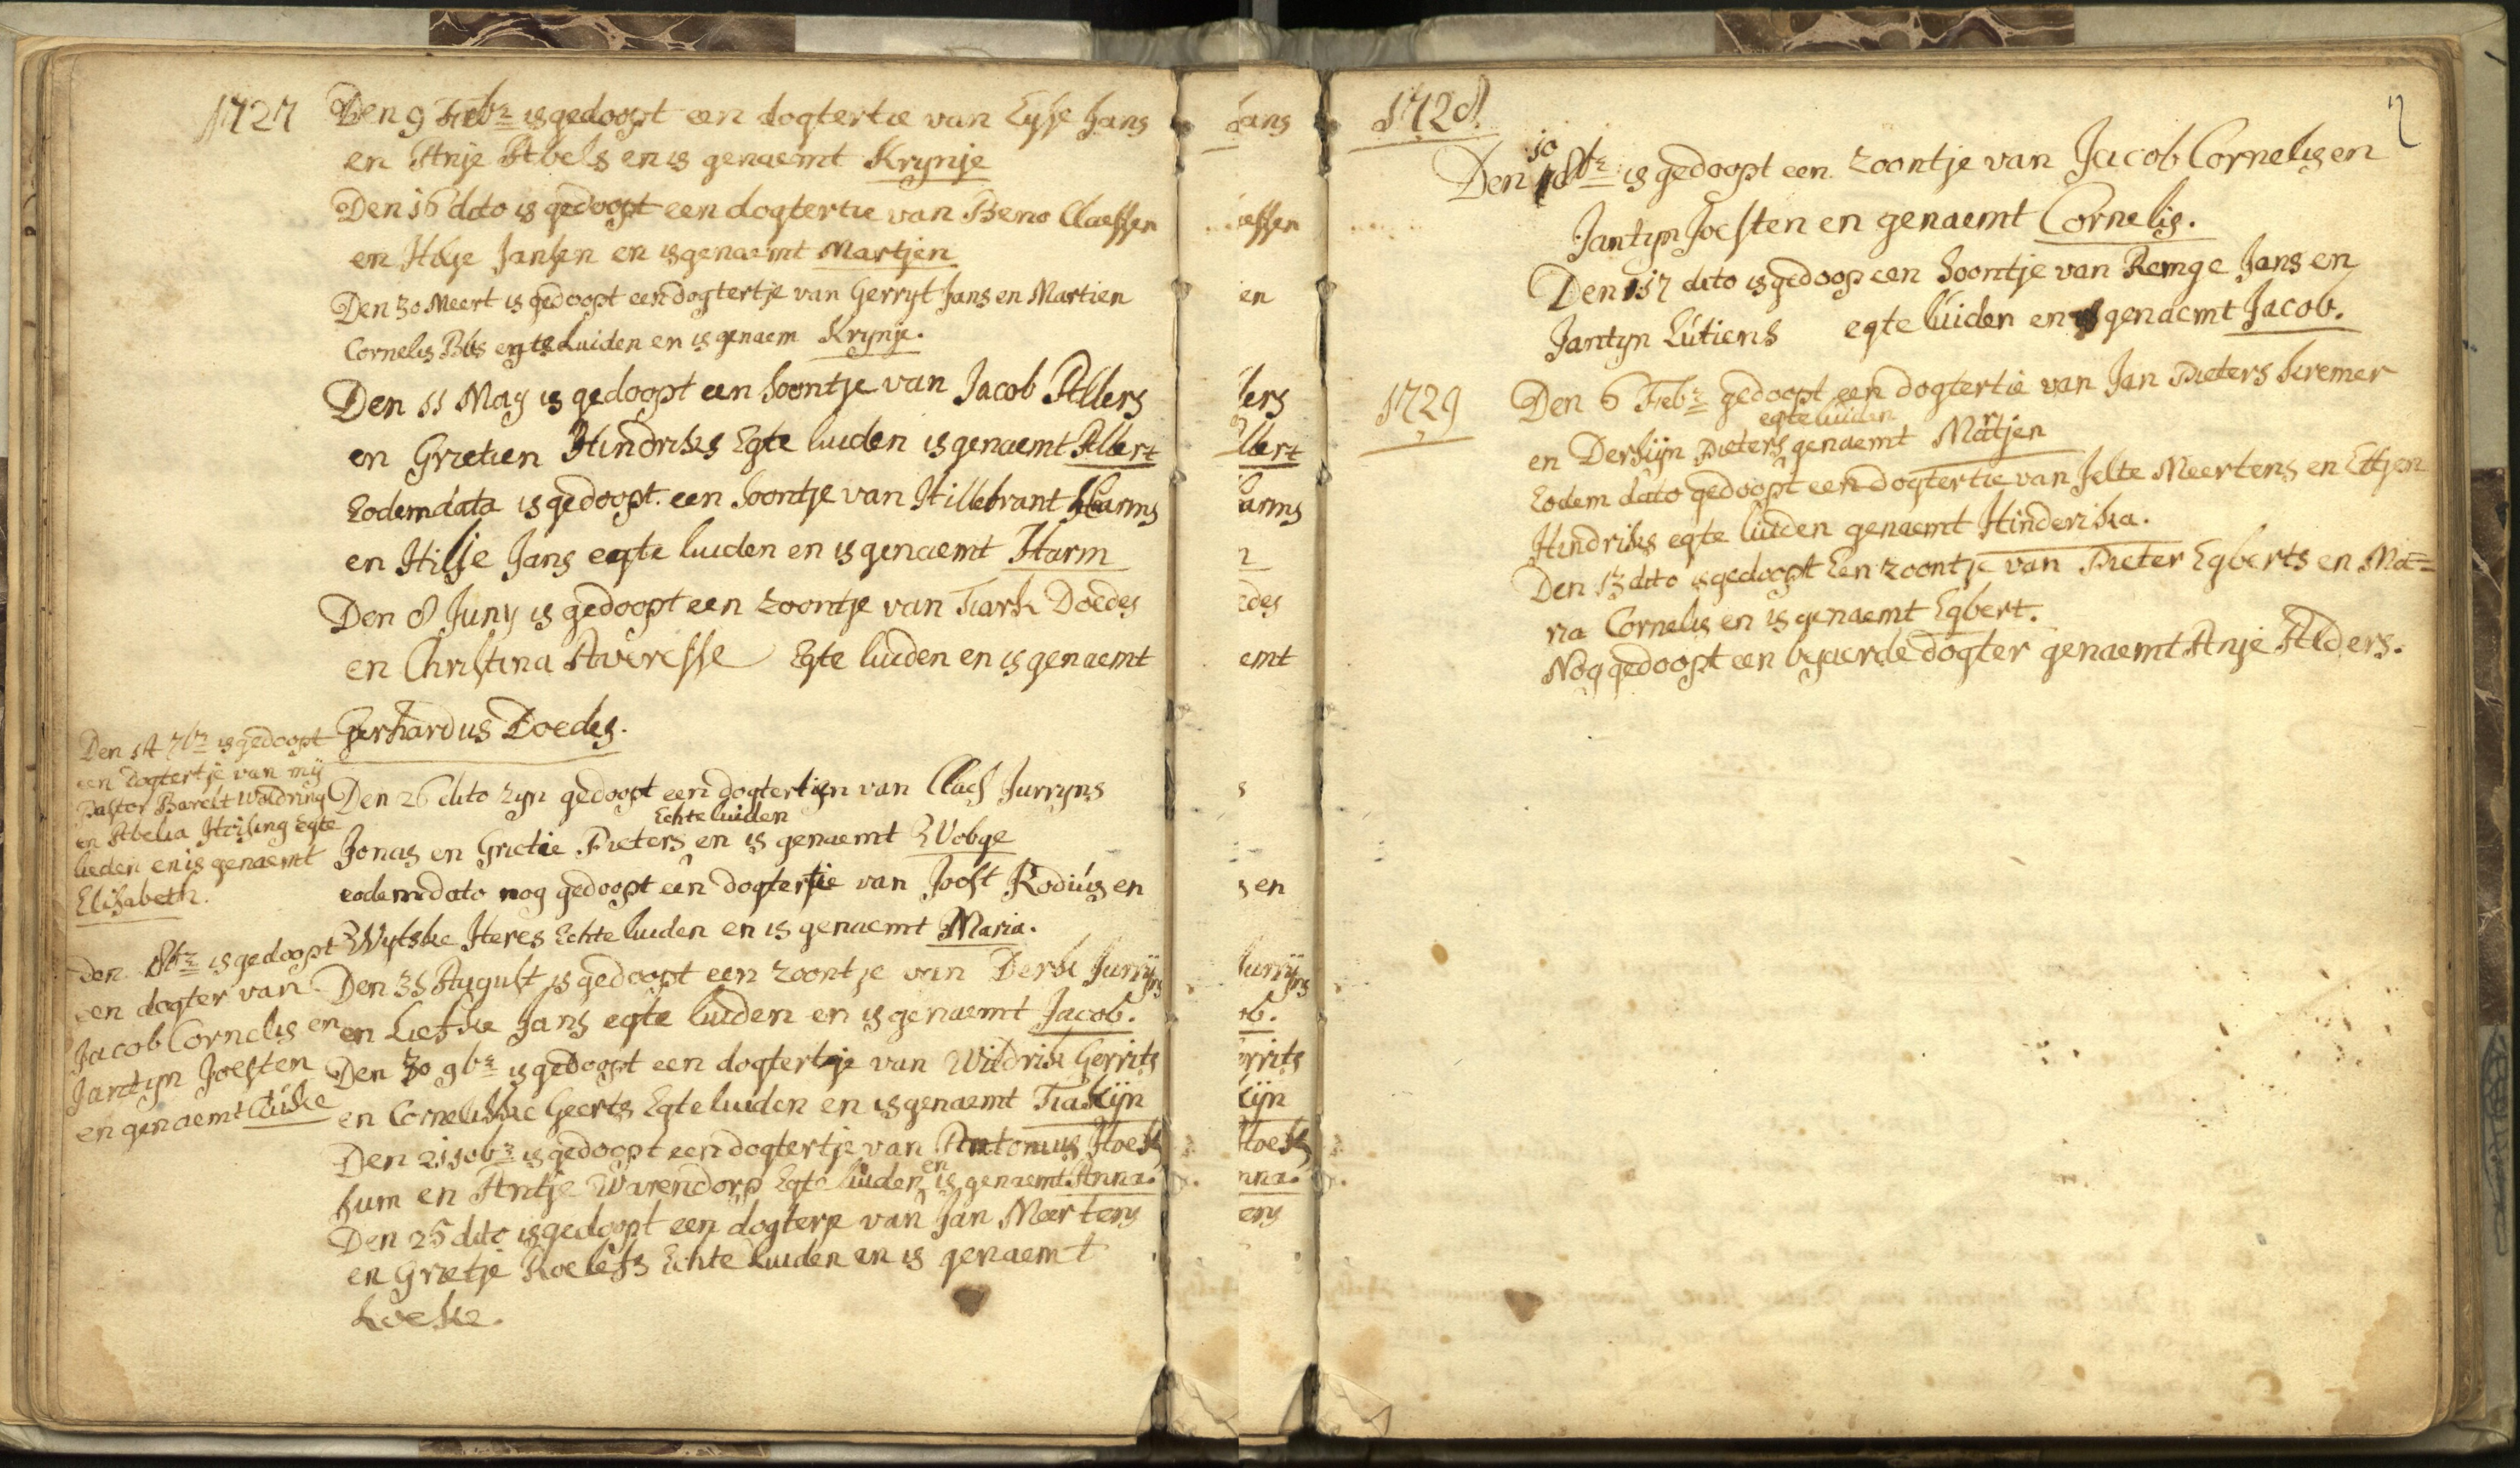 1727
Den 9 Febr is gedoopt een dogtertie van Eysse Jans
en Anje Abels en is genaemt Krynje
Den 16 dito is gedoopt een dogtertie van Beno Claessen
en Hilje Jansen en is genaemt Martjen
Den 30 Meert is gedoopt een dogtertje van Gerryt Jans en Martien
Cornelis Bus egte Luiden en is genaem Krynje.
Den 11 May is gedoopt een soontje van Jacob Allers
en Grietien Hindriks Egte luiden is genaemt Allert
Eodem data is gedoopt een soontje van Hillebrant Harms
en Hilje Jans egte luiden en is genaemt Harm
Den 8 Juny is gedoopt een zoontje van Tiark Doedes
en Christina Averesse Egte luiden en is genaemt
Gerhardus Doedes.
Den 26 dito zyn gedoopt een dogtertien van Claes Jurryns
Echte luiden
Jonas en Grietie Pieters en is genaemt Wobge
eodem dato nog gedoopt een dogtertie van Joost Rodius en
Wytske Heres Echte luiden en is genaemt Maria.
Den 31 Augult is gedoopt een zoontje van Derk Jurrijns
en Liefke Jans egte luiden en is genaemt Jacob.
Den 30 9br is gedoopt een dogtertje van Wildrik Gerrits
en Corneliske Geerts Egte luiden en is genaemt Tiakijn
Den 21 10br is gedoopt een dogtertje van Antonius Hoek
sum en Antje Warendorp Egte luiden en is genaemt Anna.
Den 25 dito is gedoopt een dogterje van Jan Meertens
en Grietje Roelefs Echte Luiden en is genaemt
Koeke.
Den 14 7br is gedoopt
een dogtertje van mij
Pastor Barelt Woldring
en Abelia Heising Egte
lieden en is genaemt
Elisabeth.
Den 8br is gedoopt
een dogter van
Jacob Cornelis en
Jantyn Joesten
en genaemt Cluske
1728.
10
Den 8br is gedoopt een zoontje van Jacob Cornelis en
Jantyn Joesten en genaemt Cornelis.
Den 17 dito is gedoop een soontje van Remge Jans en
Jantyn Lútiens egte luiden en is genaemt Jacob.
1729
Den 6 Febr gedoopt een dogtertie van Jan Pieters Kremer
egte luiden
en Derkijn Pieters genaemt Martjen
Eodem dato gedoopt een dogtertie van Jelte Meertens en Ettjen
Hindriks egte luiden genaemt Hinderika.
Den 13 dito is gedoopt Een zoontje van Pieter Egberts en Ma=
ria Cornelis en is genaemt Egbert.
Nog gedoopt een bejaerde dogter genaemt Anje Alders.